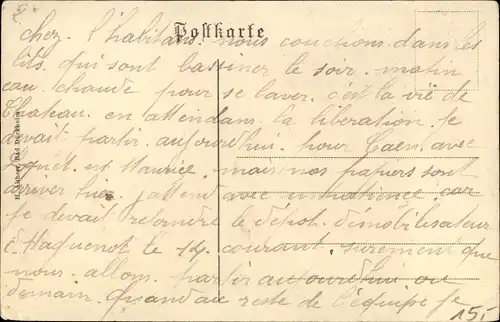 2
Postkarte
chez l'habitans. nous couchions dans les
lits. qui sont bassiner le soir. matin
eau chaude pour se laver. c'est la vie de
Chateau. en attendans la liberation. Je
devait partir aujourdhui pour Caen avec
et Maurice. mais nos papiers sont
arriver hier. j'attend avec impatience car
je devait rejoindre le depot démobilisateur
d'Haguenot le 14 courant. surement que
nous allons partir aujourdhui ou
demain. Quand au reste de l'équipe je
15,-